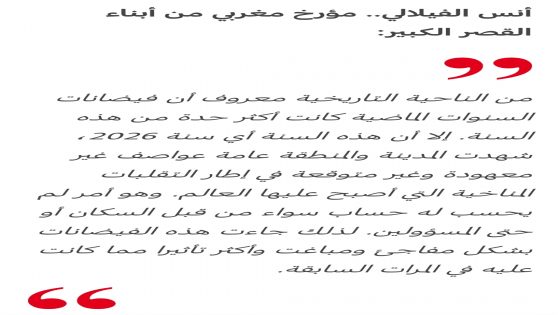 أنس الفيلالي.. مؤرخ مغربي من أبناء
القصر الكبير:
من الناحية التاريخية معروف أن فيضانات
السنوات الماضية كانت أكثر حدة من هذه
السنة. إلا أن هذه السنة أي سنة 2026،
شهدت المدينة والمنطقة عامة عواصف غير
معهودة وغير متوقعة في إطار التقلبات
المناخية التي أصبح عليها العالم. وهو أمر لم
يحسب له حساب سواء من قبل السكان أو
حتى المسؤولين. لذلك جاءت هذه الفيضانات
بشكل مفاجئ ومباغت وأكثر تأثيرا مما كانت
عليه في المرات السابقة.